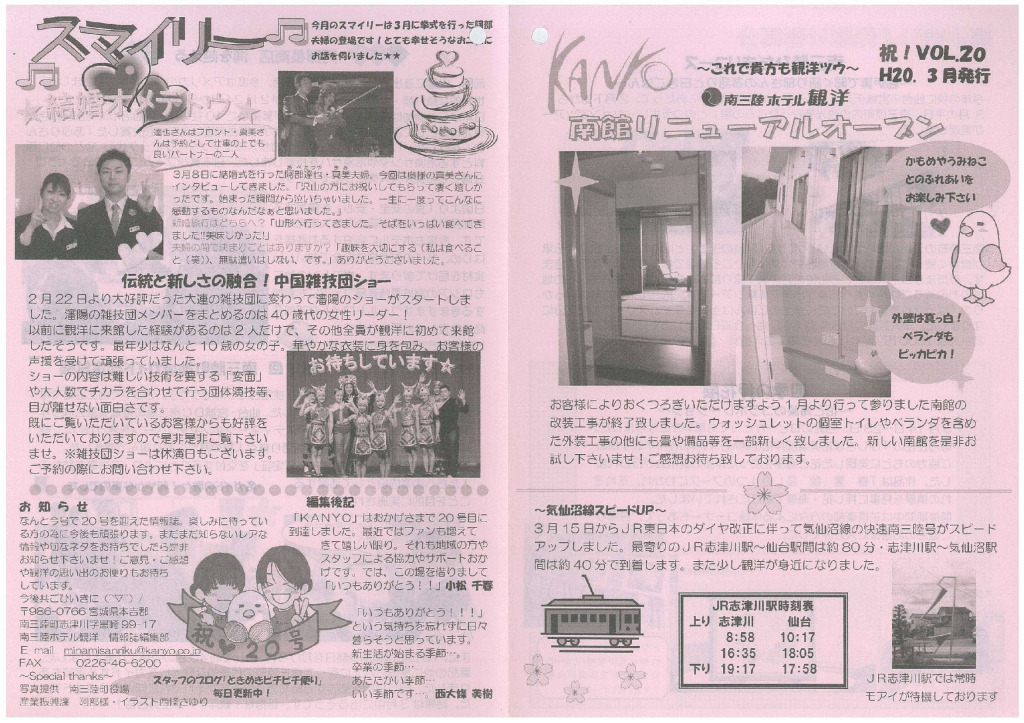 スマイリー
今月のスマイリーは3月に挙式を行った阿部
夫婦の登場です！とても幸せそうなお二人に
お話を伺いました★★
★結婚オメデトウ★
達也さんはフロント・真美さ
んは予約として仕事の上でも
良いパートナーの二人
3月8日に結婚式を行った阿部達也・真美夫婦。今回は奥様の真美さんに
インタビューしてきました。「沢山の方にお祝いしてもらって凄く嬉しか
ったです。始まった瞬間から泣いちゃいました。一生に一度ってこんなに
感動するものなんだなぁと思いました。」
新婚旅行はどちらへ？「山形へ行ってきました。そばをいっぱい食べてき
ました!!美味しかった!」
夫婦の間で決まりごとはありますか？「趣味を大切にする（私は食べるこ
と（笑））、無駄遣いはしない、です。」ありがとうございました。
伝統と新しさの融合！中国雑技団ショー
2月22日より大好評だった大連の雑技団に変わって瀋陽のショーがスタートしま
した。瀋陽の雑技団メンバーをまとめるのは40歳代の女性リーダー！
以前に観洋に来館した経験があるのは2人だけで、その他全員が観洋に初めて来館
したそうです。最年少はなんと10歳の女の子。華やかな衣装に身を包み、お客様の
声援を受けて頑張っていました。
ショーの内容は難しい技術を要する「変面」
や大人数でチカラを合わせて行う団体演技等、
目が離せない面白さです。
既にご覧いただいているお客様からも好評を
いただいておりますので是非是非ご覧下さい
ませ。※雑技団ショーは休演日もございます。
ご予約の際にお問い合わせ下さい。
お待ちしています★
お知らせ
なんと今号で20号を迎えた情報誌。楽しみに待ってい
る方の為に今後も頑張ります。まだまだ知らないレアな
情報や旬なネタをお持ちでしたら是非
お知らせ下さいませ！ご意見・ご感想
や観洋の思い出のお便りもお待ち
しています。
今後共ごひいきに（＾▽＾）/
〒986-0766 宮城県本吉郡
南三陸町志津川字黒崎99-17
南三陸ホテル観洋 情報誌編集部
E mail minamisanriku@kanyo.co.jp
FAX 0226-46-6200
～Special thanks～
写真提供 南三陸町役場
産業振興課 阿部様・イラスト西條さゆり
祝☆20号
スタッフのブログ「ときめきピチピチ便り」
毎日更新中！
編集後記
「KANYO」はおかげさまで20号目に
到達しました。最近ではファンも増えて
きて嬉しい限り。それも地域の方や
スタッフによる協力やサポートおか
げです。では、この場を借りまして
「いつもありがとう！！」小松 千春
「いつもありがとう！！！」
という気持ちを忘れずに日々
暮らそうと思っています。
新生活が始まる季節…。
卒業の季節…
あたたかい季節…
いい季節です…。西大條 美樹
KANYO
～これで貴方も観洋ツウ～
祝！VOL.20
H20. 3月発行
南三陸ホテル観洋
南館リニューアルオープン
かもめやうみねこ
とのふれあいを
お楽しみ下さい
外壁は真っ白！
ベランダも
ピッカピカ！
お客様によりおくつろぎいただけますよう1月より行って参りました南館の
改装工事が終了致しました。ウォッシュレットの個室トイレやベランダを含め
た外装工事の他にも畳や備品等を一部新しく致しました。新しい南館を是非お
試し下さいませ！ご感想お待ち致しております。
～気仙沼線スピードUP～
3月15日からJR東日本のダイヤ改正に伴って気仙沼線の快速南三陸号がスピード
アップしました。最寄りのJR志津川駅～仙台駅間は約80分・志津川駅～気仙沼駅
間は約40分で到着します。また少し観洋が身近になりました。
JR志津川駅時刻表
上り 志津川 仙台
8:58 10:17
16:35 18:05
下り 19:17 17:58
JR志津川駅では常時
モアイが待機しております